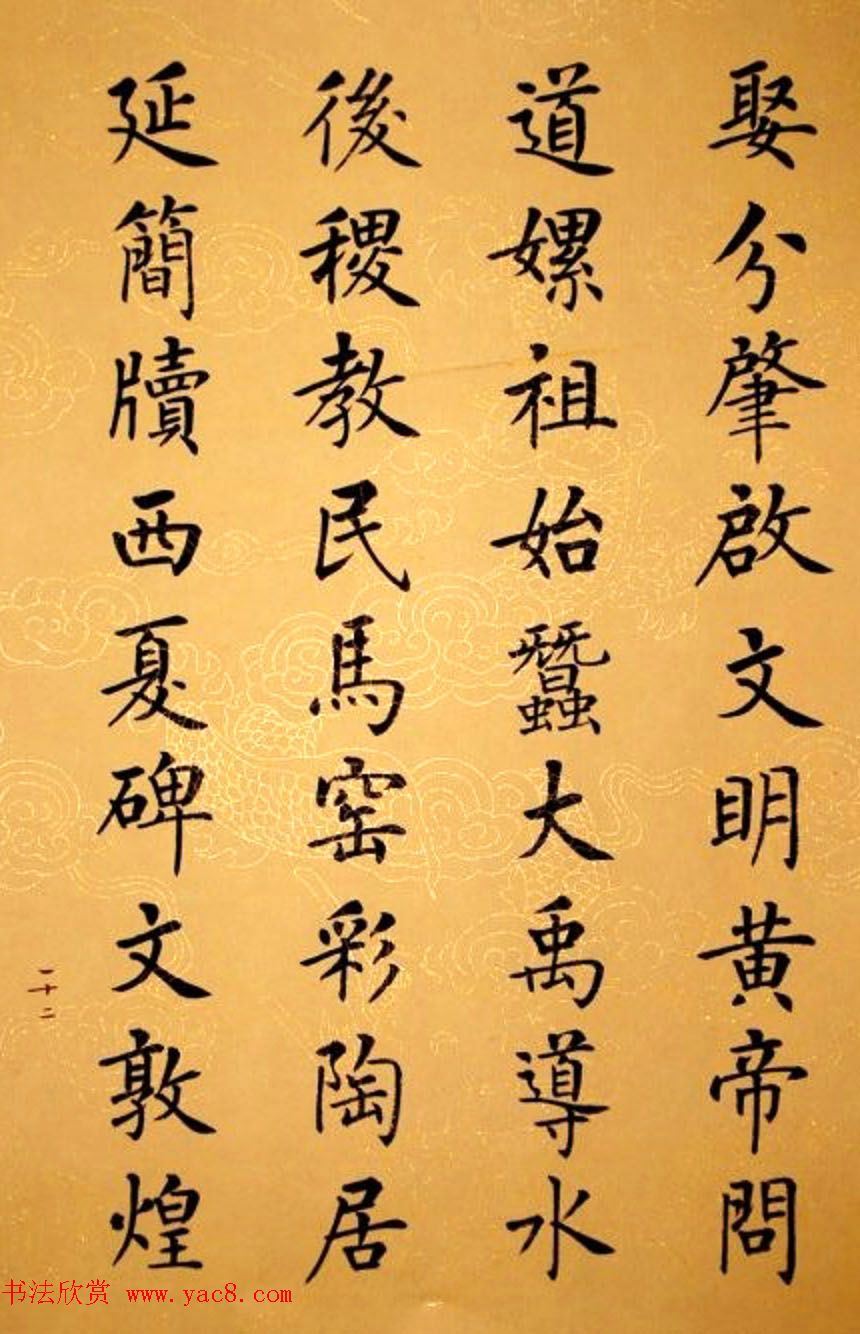 娶分肇啟文明黄帝問
道嫘祖始蠶大禹導水
後稷教民馬窑彩陶居
延簡牘西夏碑文敦煌
一十二
书法欣赏 www.yac8.com